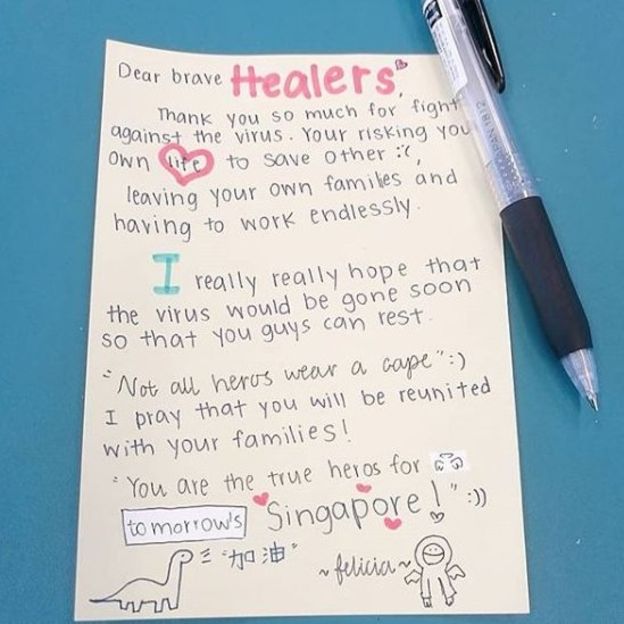 Dear brave Healers,
Thank you so much for fight
against the virus. Your risking you
own life to save other :'(,
leaving your own families and
having to work endlessly.
I really really hope that
the virus would be gone soon
so that you guys can rest.
"Not all heros wear a cape" :)
I pray that you will be reunited
with your families!
"You are the true heros for
tomorrow's Singapore!" :))
"加油"
~felicia~